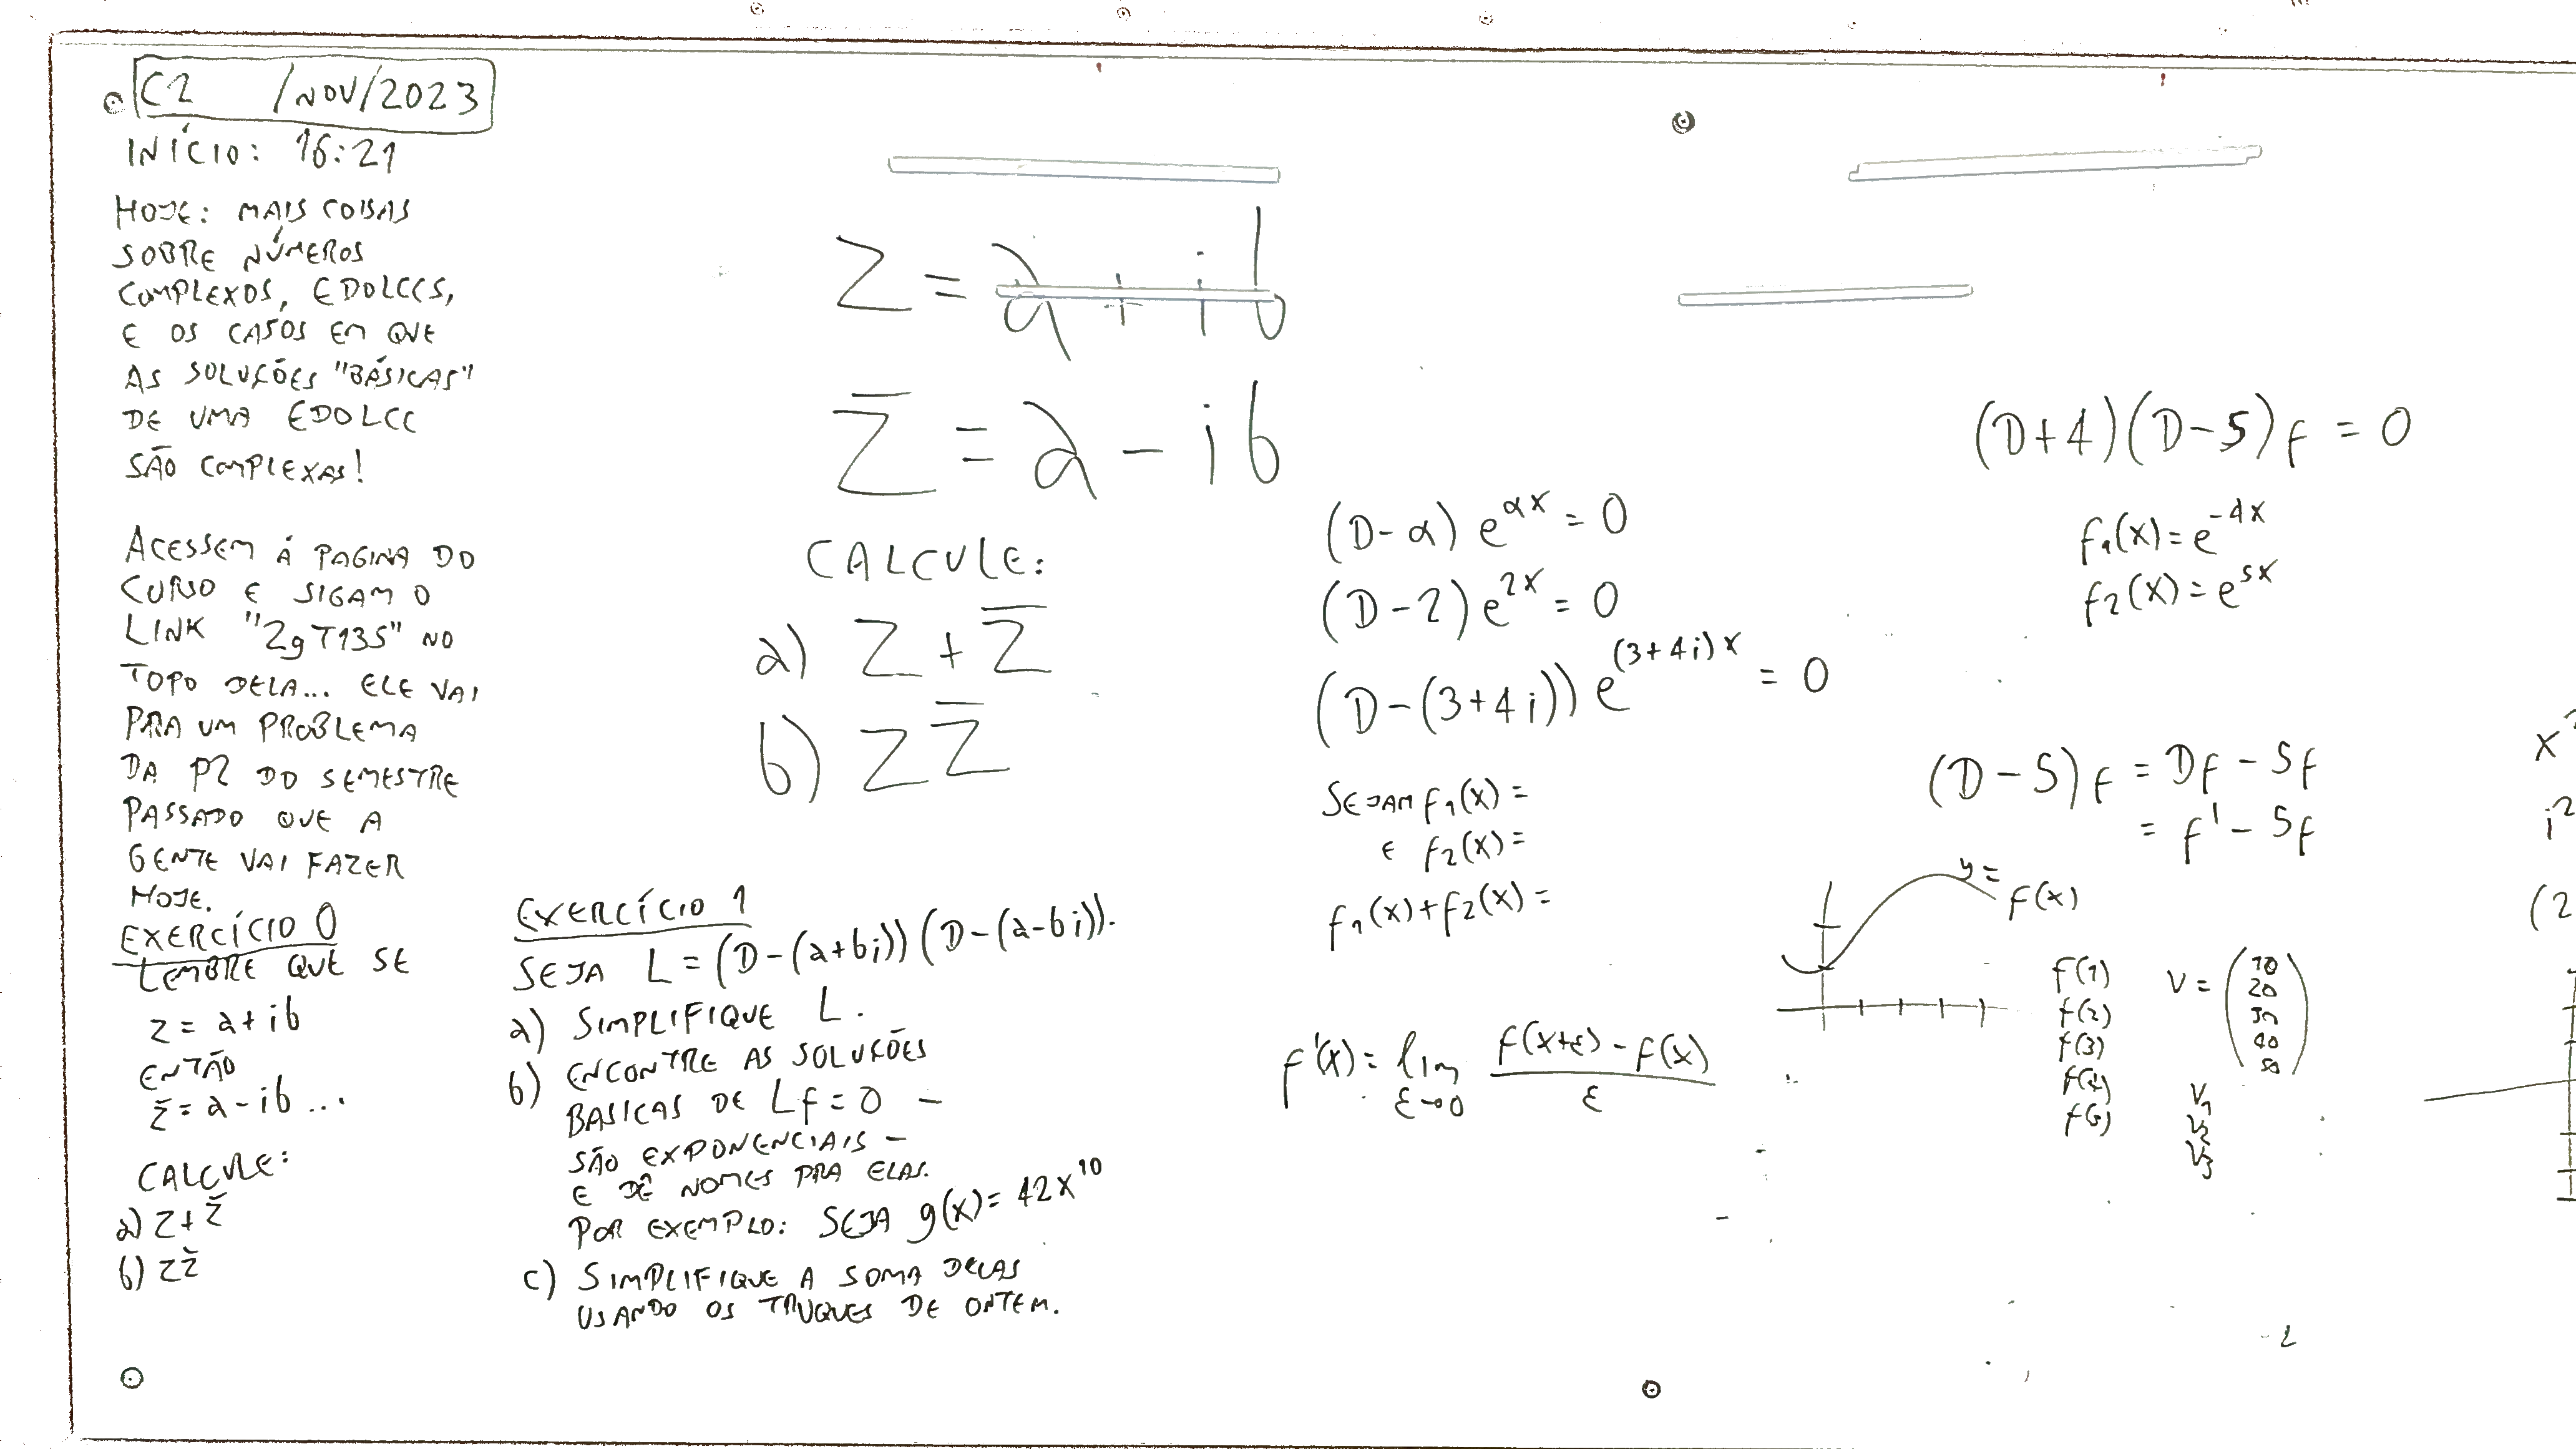 C2 /NOV/2023
INÍCIO: 16:21
HOJE: MAIS COISAS
SOBRE NÚMEROS
COMPLEXOS, EDOLCCS,
E OS CASOS EM QUE
AS SOLUÇÕES "BÁSICAS"
DE UMA EDOLCC
SÃO COMPLEXAS!
ACESSEM À PAGINA DO
CURSO E SIGAM O
LINK "2gT135" NO
TOPO DELA... ELE VAI
PRA UM PROBLEMA
DA P2 DO SEMESTRE
PASSADO QUE A
GENTE VAI FAZER
HOJE.
EXERCÍCIO 0
LEMBRE QUE SE
z = a+ib
ENTÃO
z̄ = a-ib ...
CALCULE:
a) z+z̄
b) zz̄
EXERCÍCIO 1
SEJA L = (D-(a+bi))(D-(a-bi)).
a) SIMPLIFIQUE L.
b) ENCONTRE AS SOLUÇÕES
BASICAS DE Lf=0 –
SÃO EXPONENCIAIS –
E DÊ NOMES PRA ELAS.
POR EXEMPLO: SEJA g(x) = 42x¹⁰
c) SIMPLIFIQUE A SOMA DELAS
USANDO OS TRUQUES DE ONTEM.
z = a + ib
z̄ = a - ib
CALCULE:
a) z + z̄
b) z z̄
(D-α) e^{αx} = 0
(D-2) e^{2x} = 0
(D-(3+4i)) e^{(3+4i)x} = 0
SEJAM f₁(x) =
E f₂(x) =
f₁(x)+f₂(x) =
f'(x) = lim_{ε→0} (f(x+ε) - f(x))/ε
(D+4)(D-5)f = 0
f₁(x) = e^{-4x}
f₂(x) = e^{5x}
(D-5)f = Df - 5f
= f' - 5f
y =
f(x)
f(1)
f(2)
f(3)
f(4)
f(5)
V = (10
20
30
40
50)
V₁
V₂
V₃
x
i²
(2